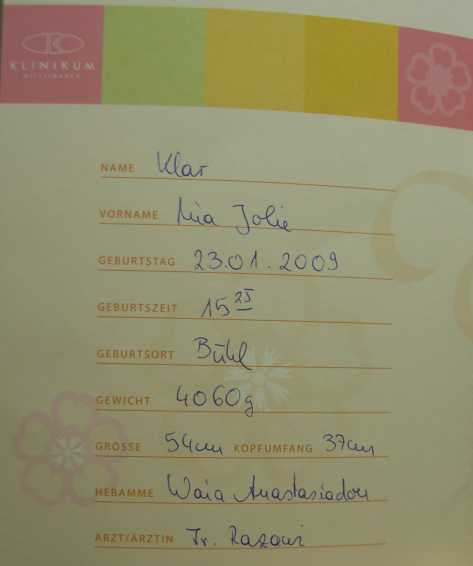 KLINIKUM
MITTELBADEN
NAME Klar
VORNAME Mia Jolie
GEBURTSTAG 23.01.2009
GEBURTSZEIT 15 25
GEBURTSORT Bühl
GEWICHT 4060g
GRÖSSE 54cm KOPFUMFANG 37cm
HEBAMME Anastasiadou
ARZT/ÄRZTIN Fr. Razavi